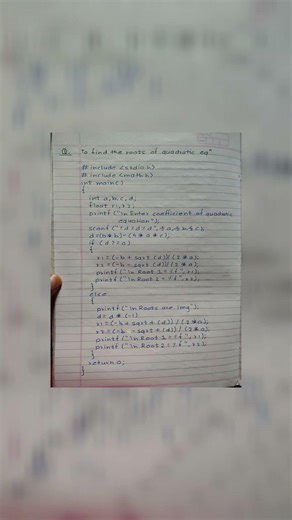 Q. To find the roots of quadratic eqⁿ
# include <stdio.h>
# include <math.h>
int main()
{
int a, b, c, d;
float r1, r2;
printf("\n Enter coefficient of quadratic
equation");
scanf("%d %d %d", & a, & b, & c);
d = (b * b) - (4 * a * c);
if (d >= 0)
{
r1 = (-b + sqrt (d)) / (2 * a);
r2 = (-b - sqrt (d)) / (2 * a);
printf("\n Root 1 = %f", r1);
printf("\n Root 2 = %f", r2);
}
else
{
printf("\n Roots are img");
d = d * (-1)
r1 = (-b + sqrt + (d)) / (2 * a);
r2 = (-b - sqrt + (d)) / (2 * a);
printf("\n Root 1 = %f", r1);
printf("\n Root 2 = %f", r2);
}
return 0;
}